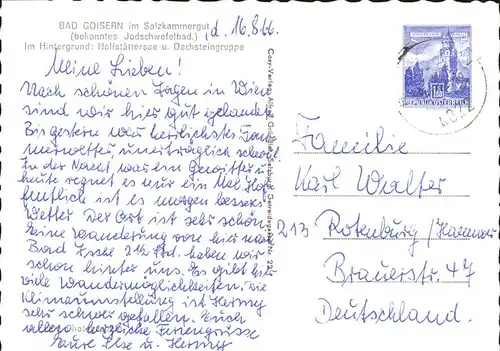 BAD GOISERN im Salzkammergut
(bekanntes Jodschwefelbad.)
Im Hintergrund: Hallstättersee u. Dachsteingruppe
d. 16.8.66.
Meine Lieben!
Nach schönen Tagen in Wien
sind wir hier gut gelandet.
Bis gestern war herrlichstes Som
merwetter, unerträglich schwül.
In der Nacht war ein Gewitter u.
heute regnet es nur ein Mal. Hof
fentlich ist es morgen besseres
Wetter. Der Ort ist sehr schön.
Eine Wanderung von hier nach
Bad Ischl 2½ Std. haben wir
schon hinter uns. Es gibt hier
viele Wandermöglichkeiten. Die
Klimaumstellung ist Herweg
sehr schwer gefallen. Euch
allen herzliche Feriengrüsse
Eure Else u.
Cosy-Verlag Alfred Salzburg, Getreidegasse Nr. 22
REPUBLIK ÖSTERREICH
Familie
Karl Walter
213 Rotenburg /Hannover
Brauerstr. 47
Deutschland.